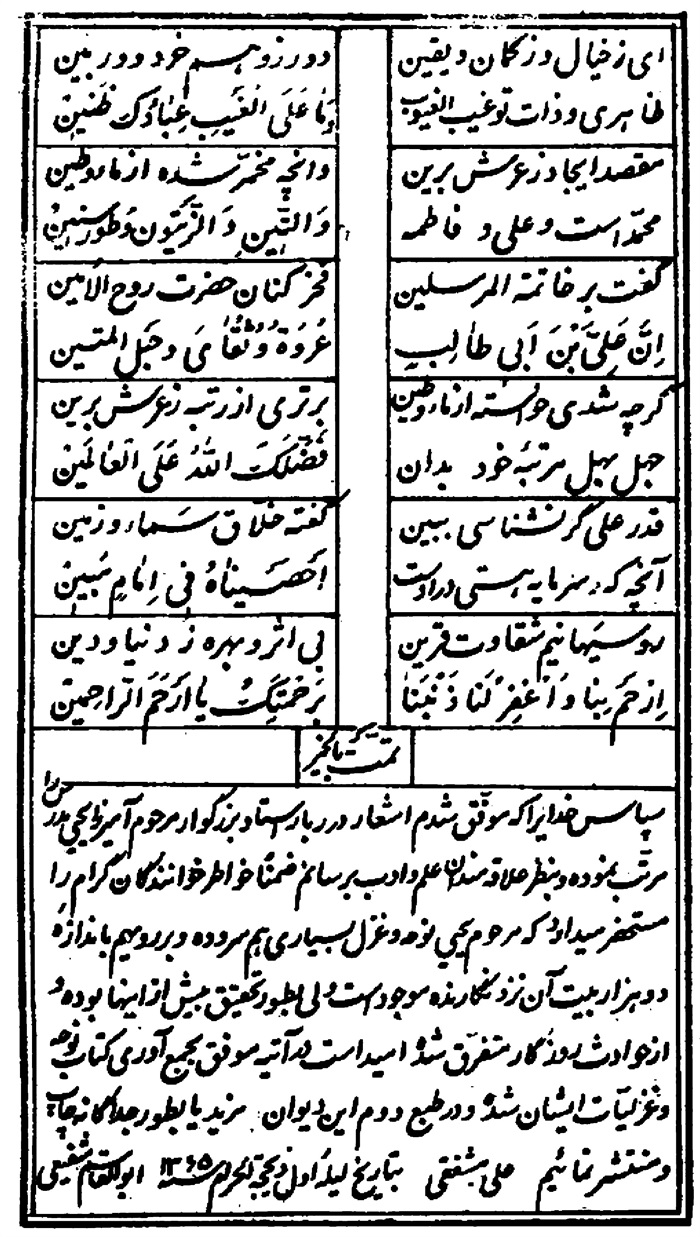 ای ز خیال و ز گمان و یقین دور ز وهم خود دور بین
ظاهری و ذات تو غیب الغیوب وَمَا عَلَی الْغَیبِ عِبادُکَ ضَنین
مقصد ایجاد ز عرش برین وانچه مخمّر شده از ماء و طین
محمّد است و علی و فاطمه وَالتّینِ وَالزَّیتُونِ وَطُورِ سینینُ
گفت بر خاتمة المرسلین فخر کنان حضرت روح الامین
اِنَّ عَلیَّ بْنَ اَبی طالِبٍ عُروَةُ وُثْقای وَ حَبلِ المتین
گرچه شدی خواسته از ماء و طین برتری از رتبه ز عرش برین
جهل بهل مرتبهٔ خود بدان فَضَّلَکَ اللّهُ عَلَی الْعالَمین
قدر علی گر نشناسی ببین گفته خلّاق سما و زمین
آنچه که سرمایه هستی در اوست اَحْصَیناهُ فی اِمامٍ مُبینٍ
روسیهانیم شقاوت قرین بی اثر و بهره ز دنیا و دین
اِرْحَمْ بِنا وَاغْفِرْ لَنا ذَنْبَنا بِرَحْمَتِکَ یا اَرْحَمَ الرّاحِمین
تمّت بالخیر
سپاس خدایرا که موفّق شدم اشعار دربار استاد بزرگوار مرحوم آمیرزا یحیی مدرس را
مرتّب نموده و بنظر علاقه مندان علم و ادب برسانم ضمناً خاطر خوانندگان گرام را
مستحضر میدارد که مرحوم یحیی نوحه و غزل بسیاری هم سروده و بر رویهم باندازه
دو هزار بیت آن نزد نگارنده موجود است ولی بطور تحقیق بیش از اینها بوده و
از حوادث روزگار متفرّق شده امید است در آتیه موفق بجمع آوری کتاب نوحه
و غزلیّات ایشان شده و در طبع دوم این دیوان مزید یا بطور جداگانه چاپ
و منتشر نمائیم علی مشفقی بتاریخ لیله اول ذیحجة الحرام سنه ۱۳۶۵ ابوالقاسم شفیعی